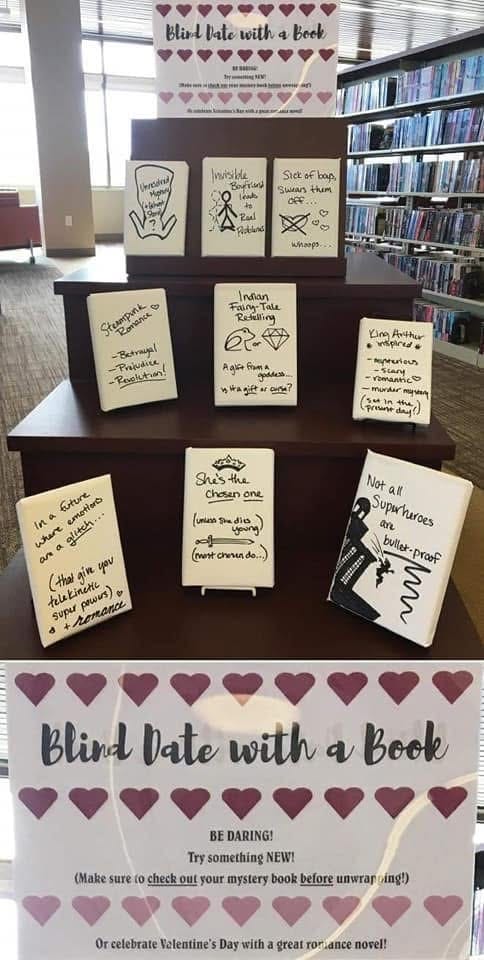 Blind Date with a Book
BE DARING!
Try something NEW!
(Make sure to check out your mystery book before unwrapping!)
Or celebrate Valentine's Day with a great romance novel!
Unresolved
Mystery
?
Invisible
Boyfriend
leads
to
Real
Problems
Sick of boys,
swears them
off...
whoops...
Steampunk
Romance
- Betrayal
- Prejudice
- Revolution!
Indian
Fairy-Tale
Retelling
or
A gift from a
goddess...
is it a gift or curse?
King Arthur
inspired
- mysterious
- scary
- romantic
- murder mystery
(set in the
present day!)
In a future
where emotions
are a glitch...
(that give you
telekinetic
super powers)
+ romance
She's the
Chosen one
(unless she dies
young)
(most chosen do...)
Not all
Superheroes
are
bullet-proof
Blind Date with a Book
BE DARING!
Try something NEW!
(Make sure to check out your mystery book before unwrapping!)
Or celebrate Valentine's Day with a great romance novel!